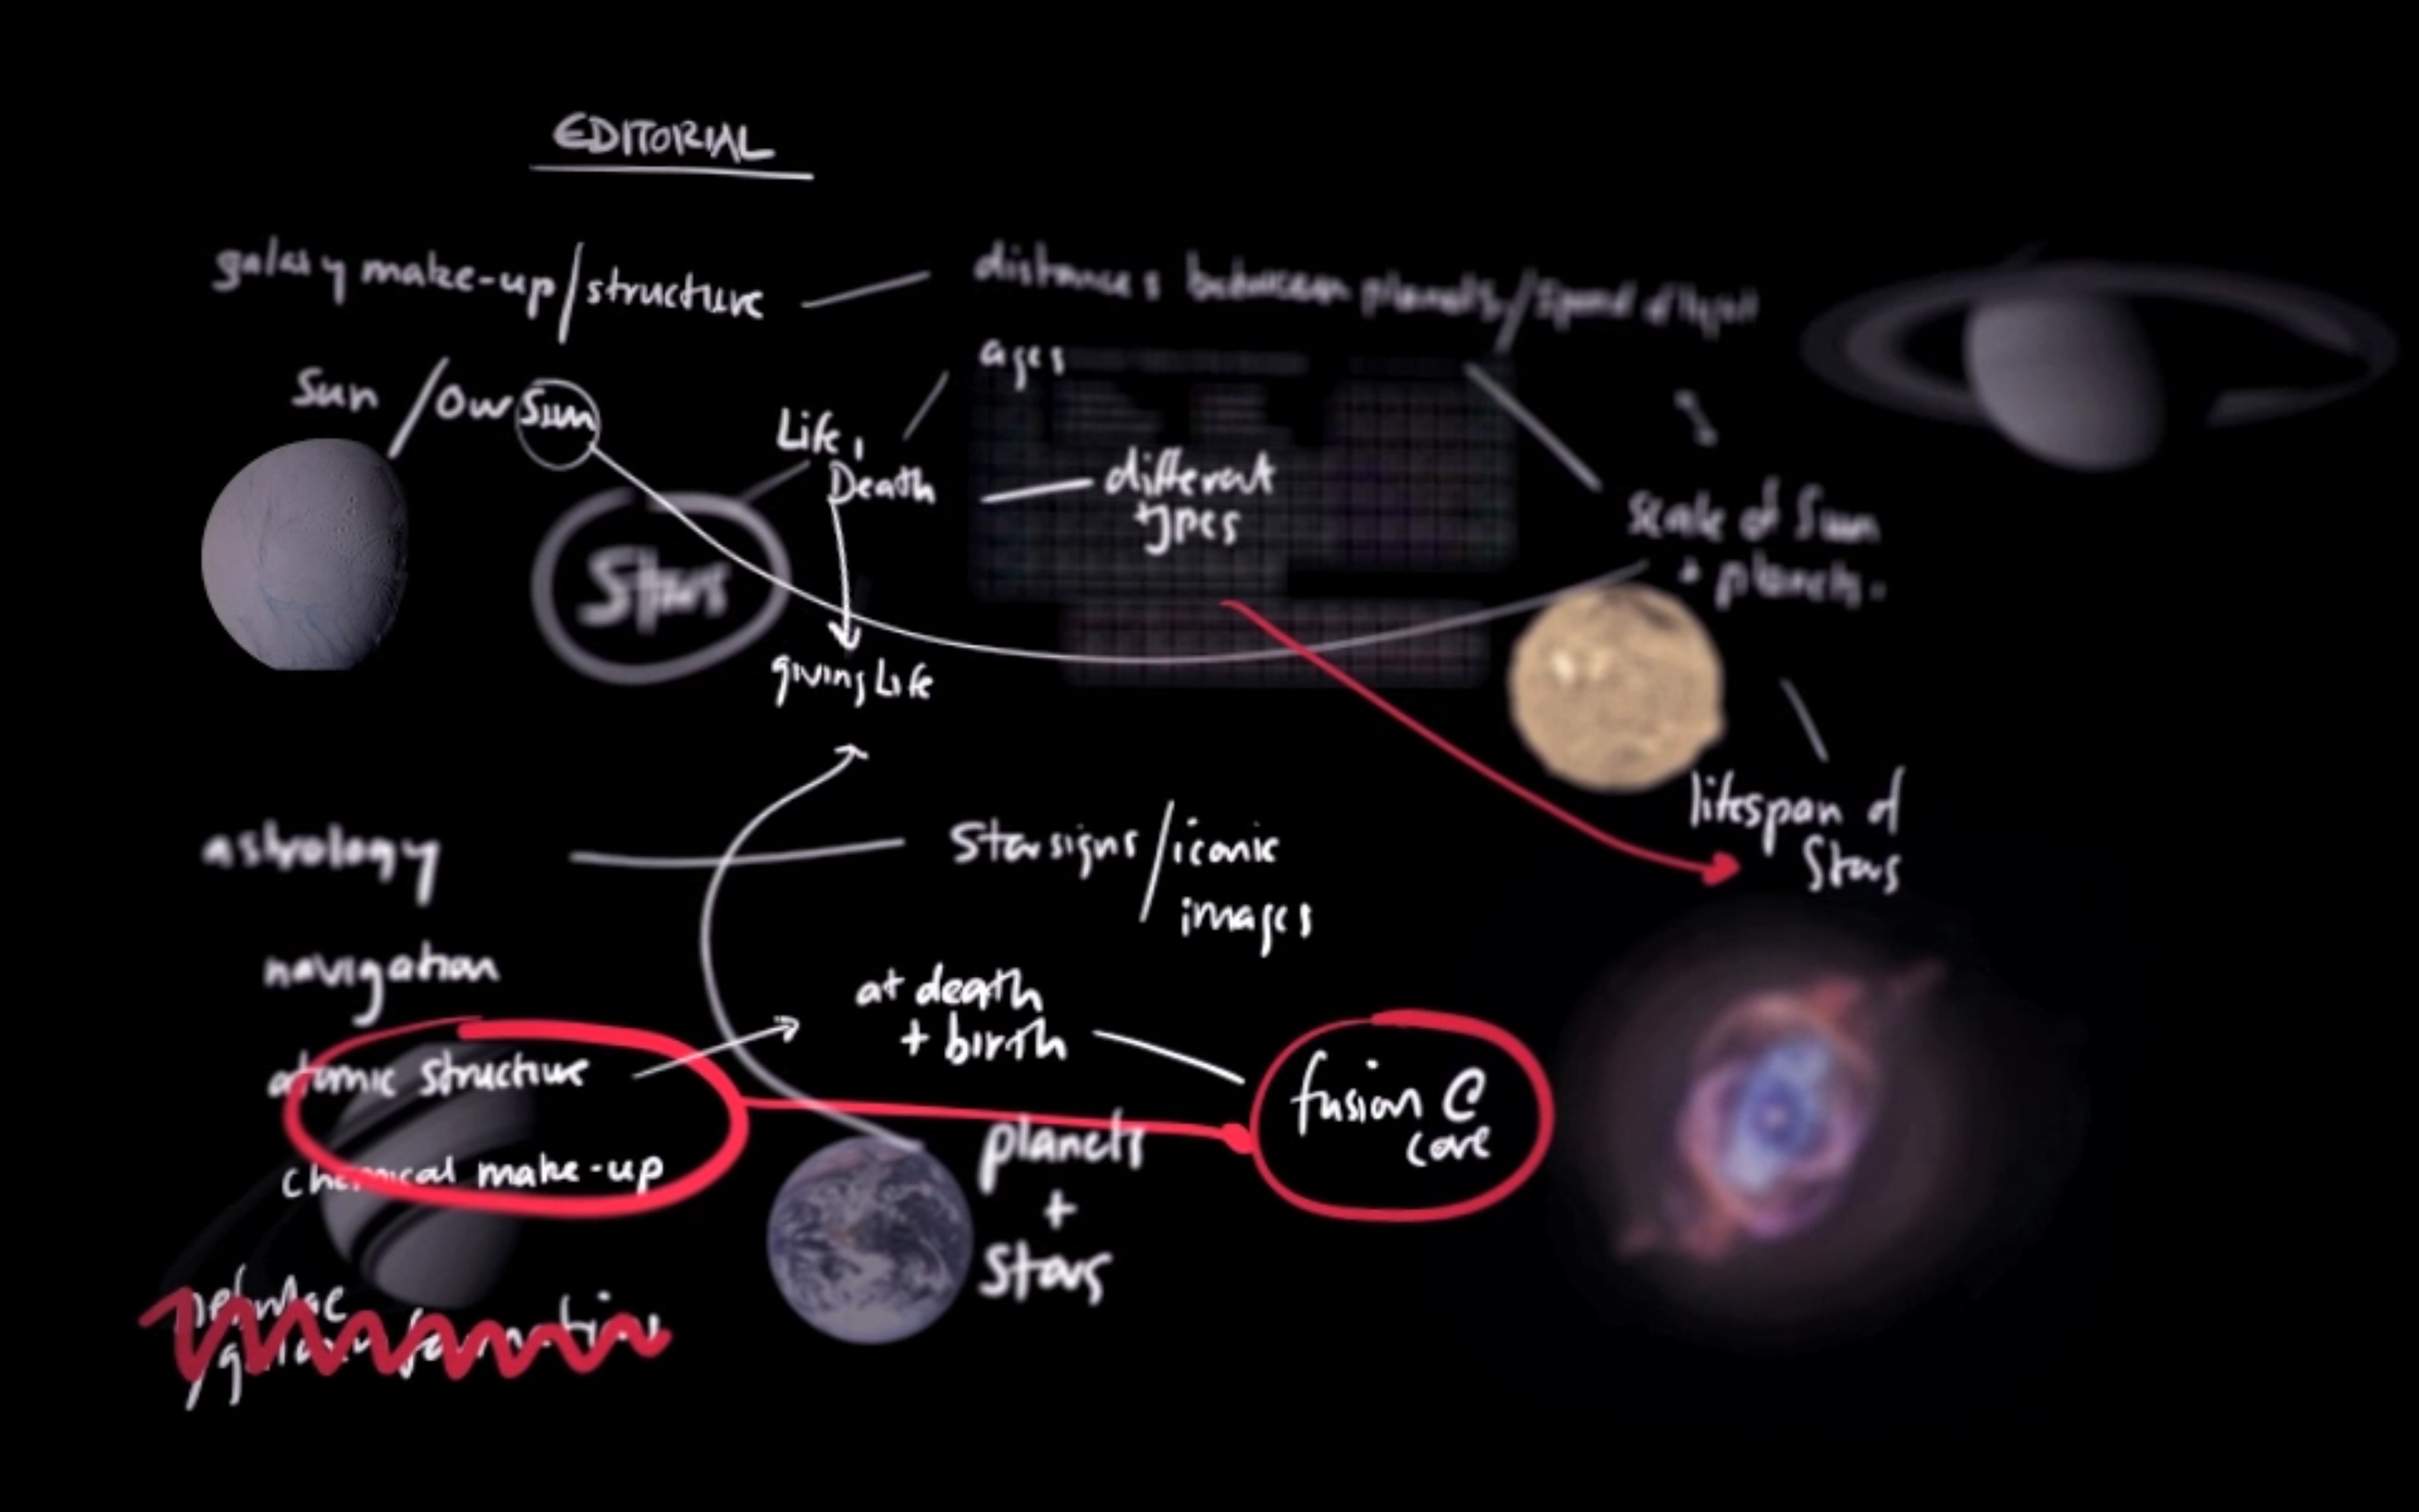 EDITORIAL
galaxy make-up/structure
distances between planets/speed of light
ages
Sun/Our Sun
Life,
Death
different
types
Stars
scale of Sun
+ planets.
giving Life
lifespan of
Stars
astrology
Star signs/iconic
images
navigation
at death
+ birth
atomic structure
fusion @
core
chemical make-up
planets
+
Stars
nebulae
/galaxy formation